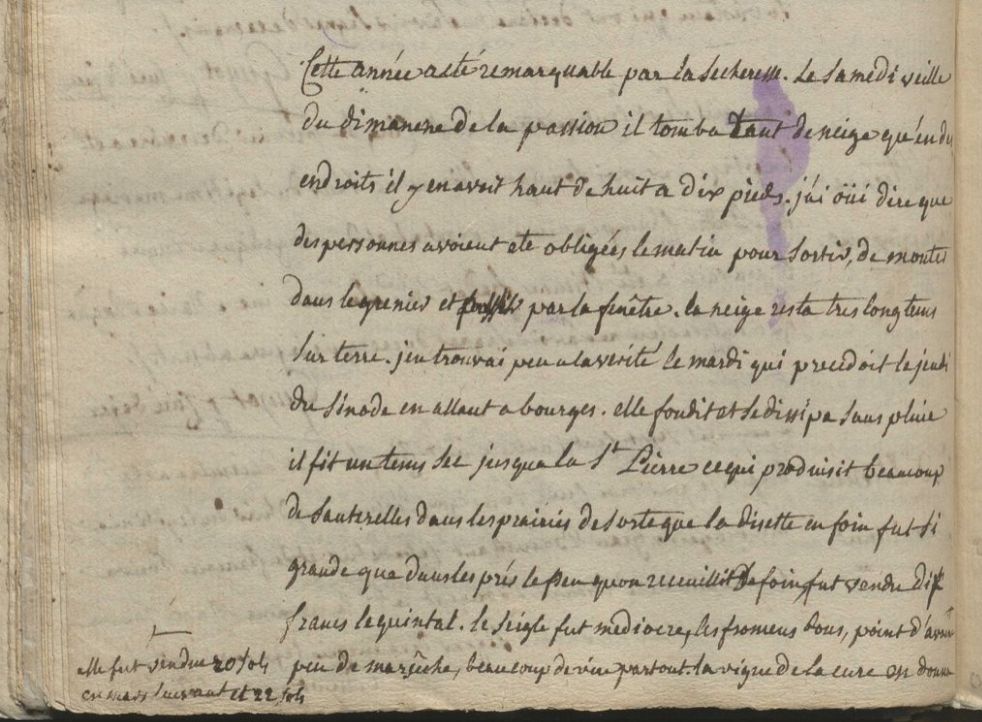 Cette année a eté remarquable par la secheresse. Le samedi veille
du dimanche de la passion il tomba tant de neige qu'en des
endroits il y en avoit haut de huit a dix pieds. j'ai öüi dire que
des personnes avoient ete obligées le matin pour sortir, de monter
dans le grenier et par la fenêtre. la neige resta tres longtems
sur terre. j'en trouvai peu a la verité le mardi qui precedoit le jeudi
du sinode en allant a bourges. elle fondit et se dissipa sans pluie
il fit un tems sec jusqu'a la St Pierre ce qui produisit beaucoup
de sauterelles dans les prairies de sorte que la disette en foin fut si
grande que dans les prés le peu qu'on recueillit de foin fut vendu dix
francs le quintal. le seigle fut mediocre, les fromens bons, point d'avoine
peu de marseche, beaucoup de vin partout. la vigne de la cure en donna
elle fut vendue 20 sols
en mars suivant et 22 sols